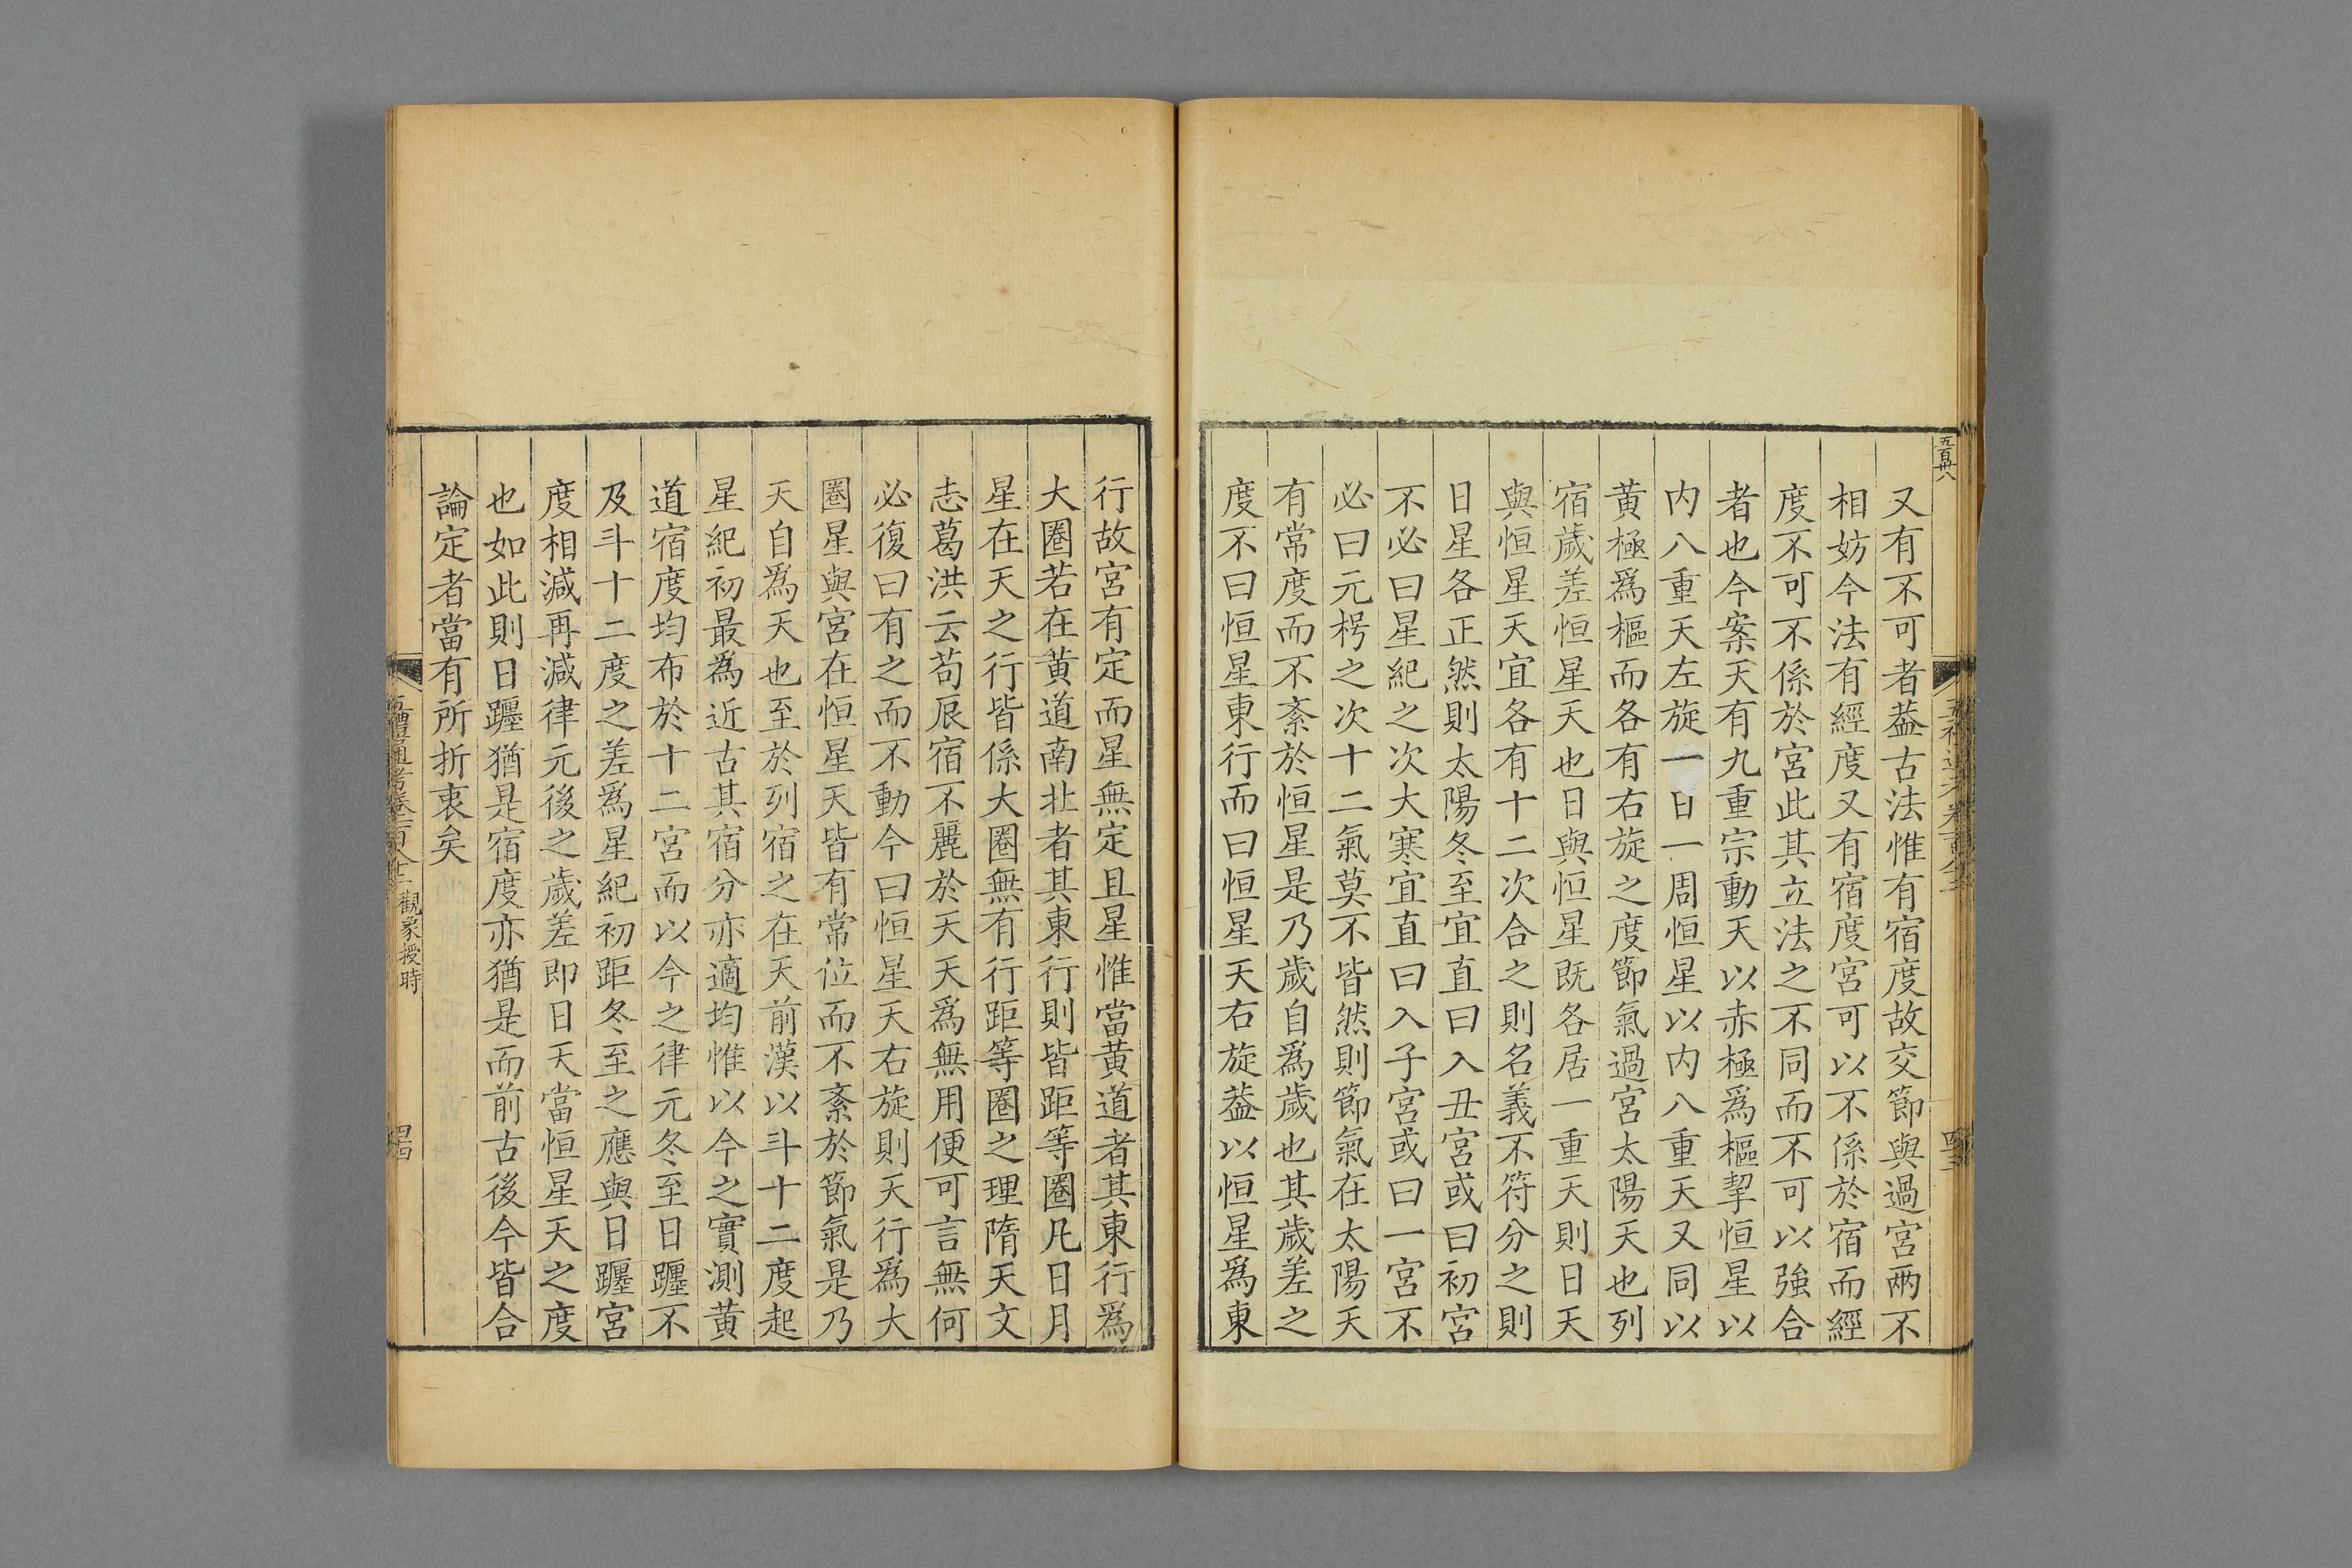 五百卅八
又有不可者葢古法惟有宿度故交節與過宮兩不
相妨今法有經度又有宿度宮可以不係於宿而經
度不可不係於宮此其立法之不同而不可以強合
者也今案天有九重宗動天以赤極爲樞挈恒星以
内八重天左旋一日一周恒星以内八重天又同以
黄極爲樞而各有右旋之度節氣過宮太陽天也列
宿歲差恒星天也日與恒星旣各居一重天則日天
與恒星天宜各有十二次合之則名義不符分之則
日星各正然則太陽冬至宜直曰入丑宮或曰初宮
不必曰星紀之次大寒宜直曰入子宮或曰一宮不
必曰元枵之次十二氣莫不皆然則節氣在太陽天
有常度而不紊於恒星是乃歲自爲歲也其歲差之
度不曰恒星東行而曰恒星天右旋葢以恒星爲東
行故宮有定而星無定且星惟當黄道者其東行爲
大圈若在黄道南北者其東行則皆距等圈凡日月
星在天之行皆係大圈無有行距等圈之理隋天文
志葛洪云苟辰宿不麗於天天爲無用便可言無何
必復曰有之而不動今曰恒星天右旋則天行爲大
圈星與宮在恒星天皆有常位而不紊於節氣是乃
天自爲天也至於列宿之在天前漢以斗十二度起
星紀初最爲近古其宿分亦適均惟以今之實測黄
道宿度均布於十二宮而以今之律元冬至日躔不
及斗十二度之差爲星紀初距冬至之應與日躔宮
度相減再減律元後之歲差即日天當恒星天之度
也如此則日躔猶是宿度亦猶是而前古後今皆合
論定者當有所折衷矣
五禮通考卷一百八十二 觀象授時